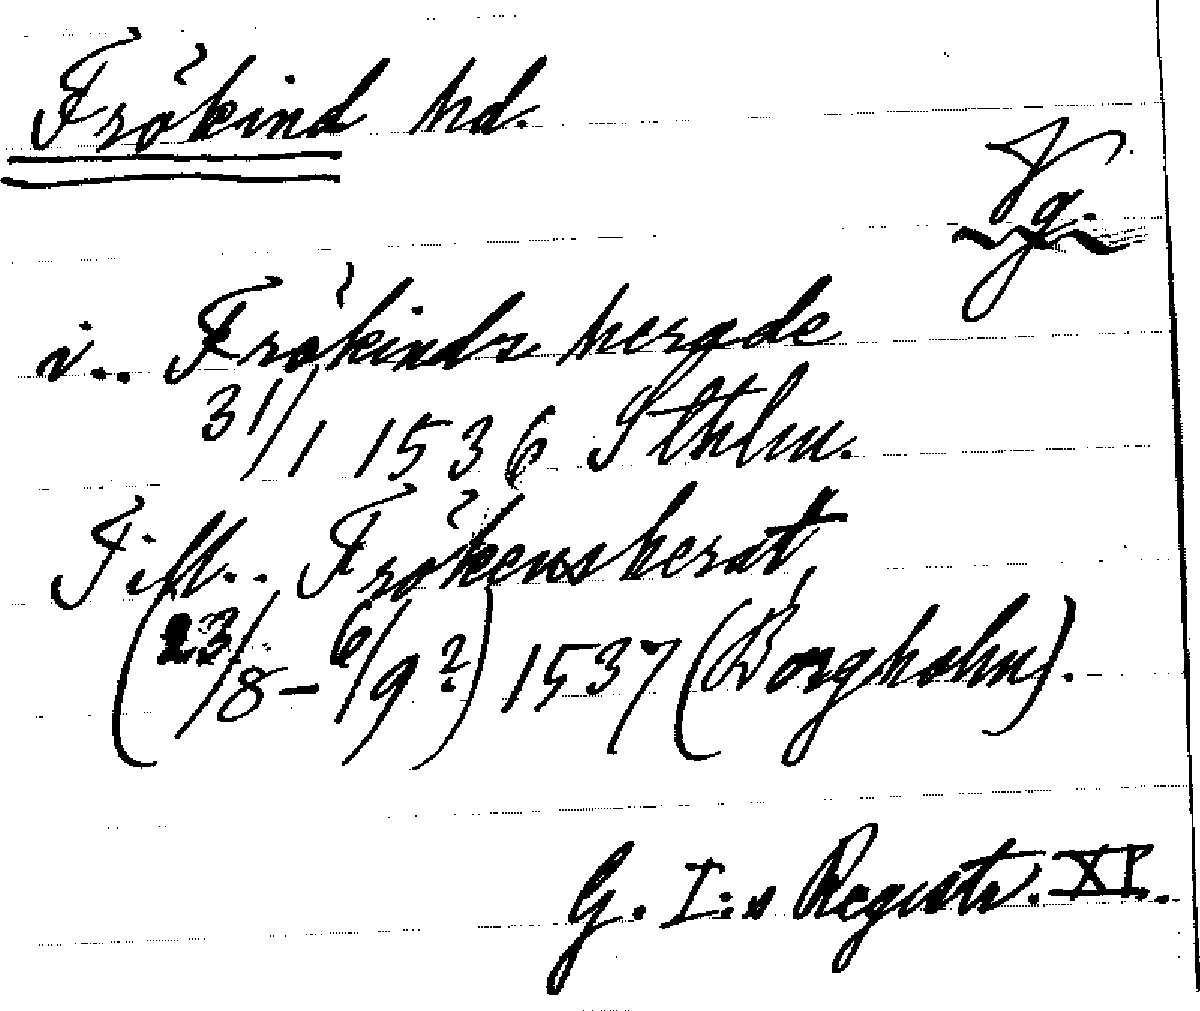 Frökind hd.
Vg.
i.. Frökindz herade
31/1 1536 Sthlm.
Till.. Frökens herat,
(23/8 – 6/9 ?) 1537 (Borgholm).
G. I:s Registr. XI.